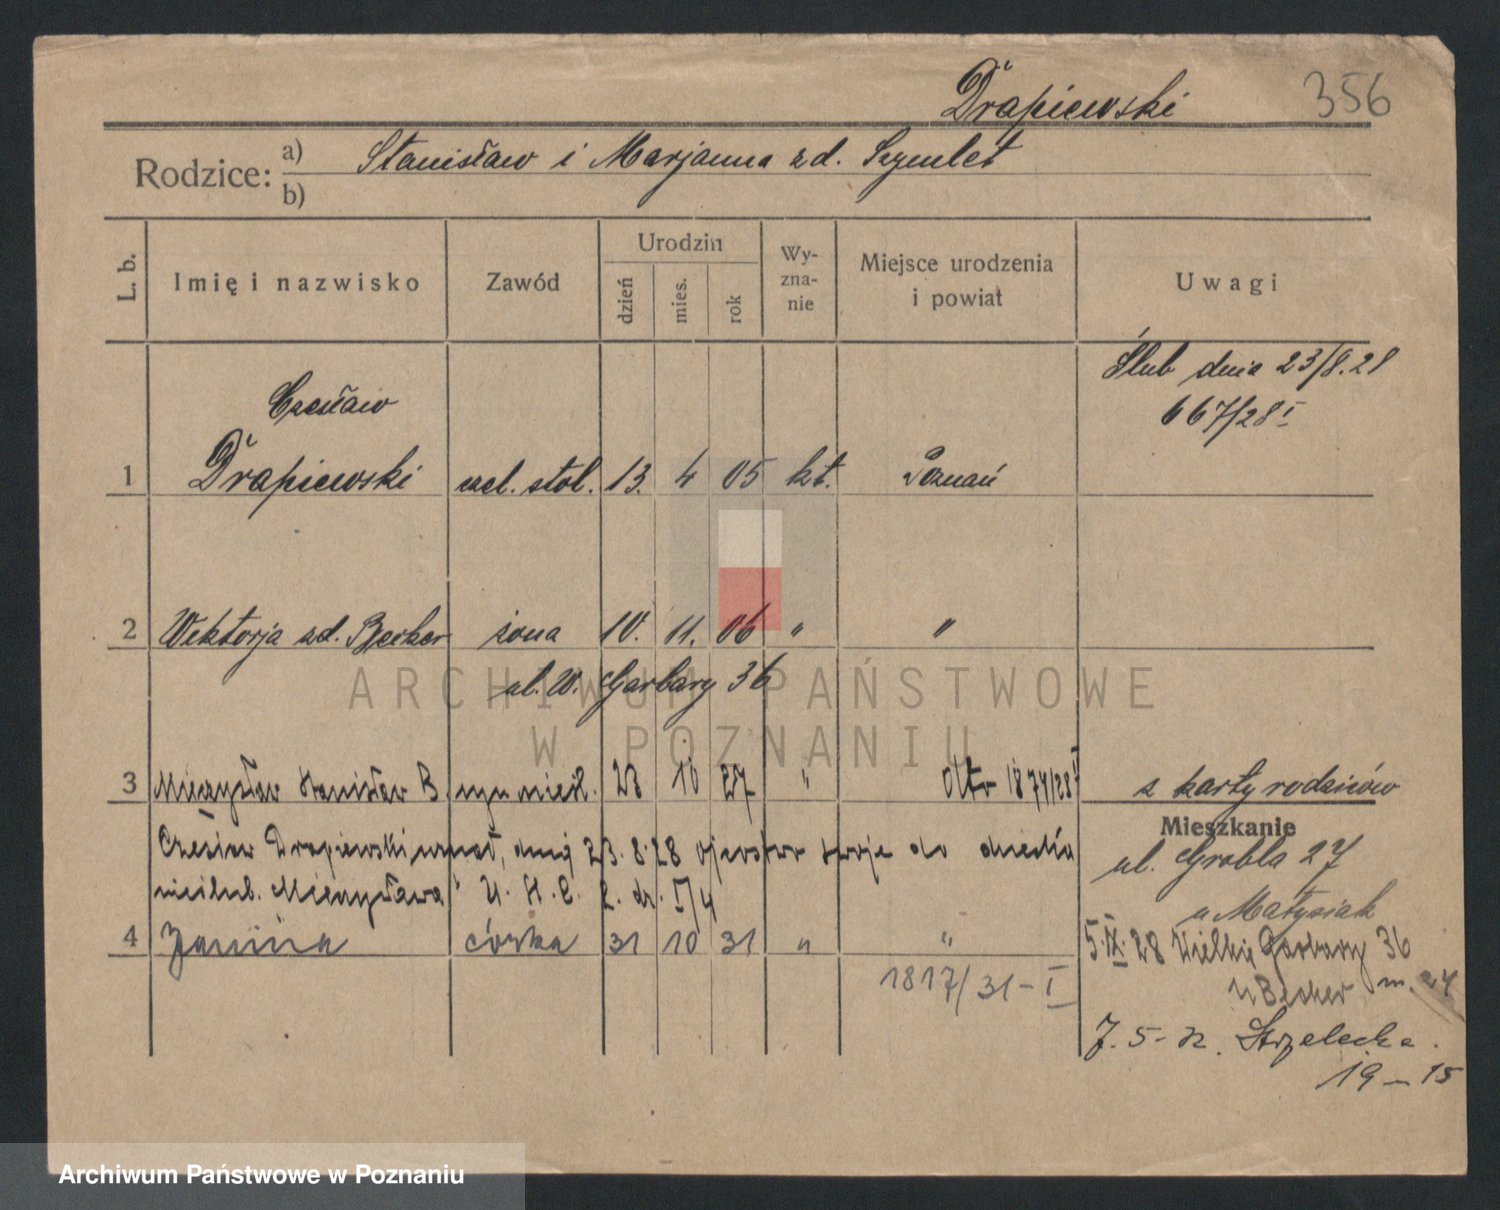 Drapiewski 356
Rodzice: a) Stanisław i Marjanna zd. Szymlet
b)
L. b. Imię i nazwisko Zawód Urodzin dzień mies. rok Wyznanie Miejsce urodzenia i powiat Uwagi
Ślub dnia 23/8.28
667/28 I
Czesław
1 Drapiewski czel. stol. 13. 4 05 kt. Poznań
2 Wiktorja zd. Becker żona 10. 11. 06 " "
ul. W. Garbary 36
ARCHIWUM PAŃSTWOWE
W POZNANIU
3 Mieczysław Stanisław B. syn nieśl. 28 10 27 " 1874/28 I z karty rodziców
Czesław Drapiewski uznał, dnia 23.8.28 ojcostwo swoje do dziecka
nieślub. Mieczysława U. St. C. I/4
Mieszkanie
ul. Grobla 27
u Matysiak
4 Janina córka 31 10 31 " "
1817/31-I
5.IX.28 Wielkie Garbary 36
u Becker m. 24
7.5-32. Strzelecka.
19-15
Archiwum Państwowe w Poznaniu